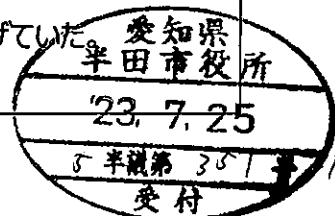 げていた。
愛知県
半田市役所
'23. 7. 25
5半議第 351号
受付